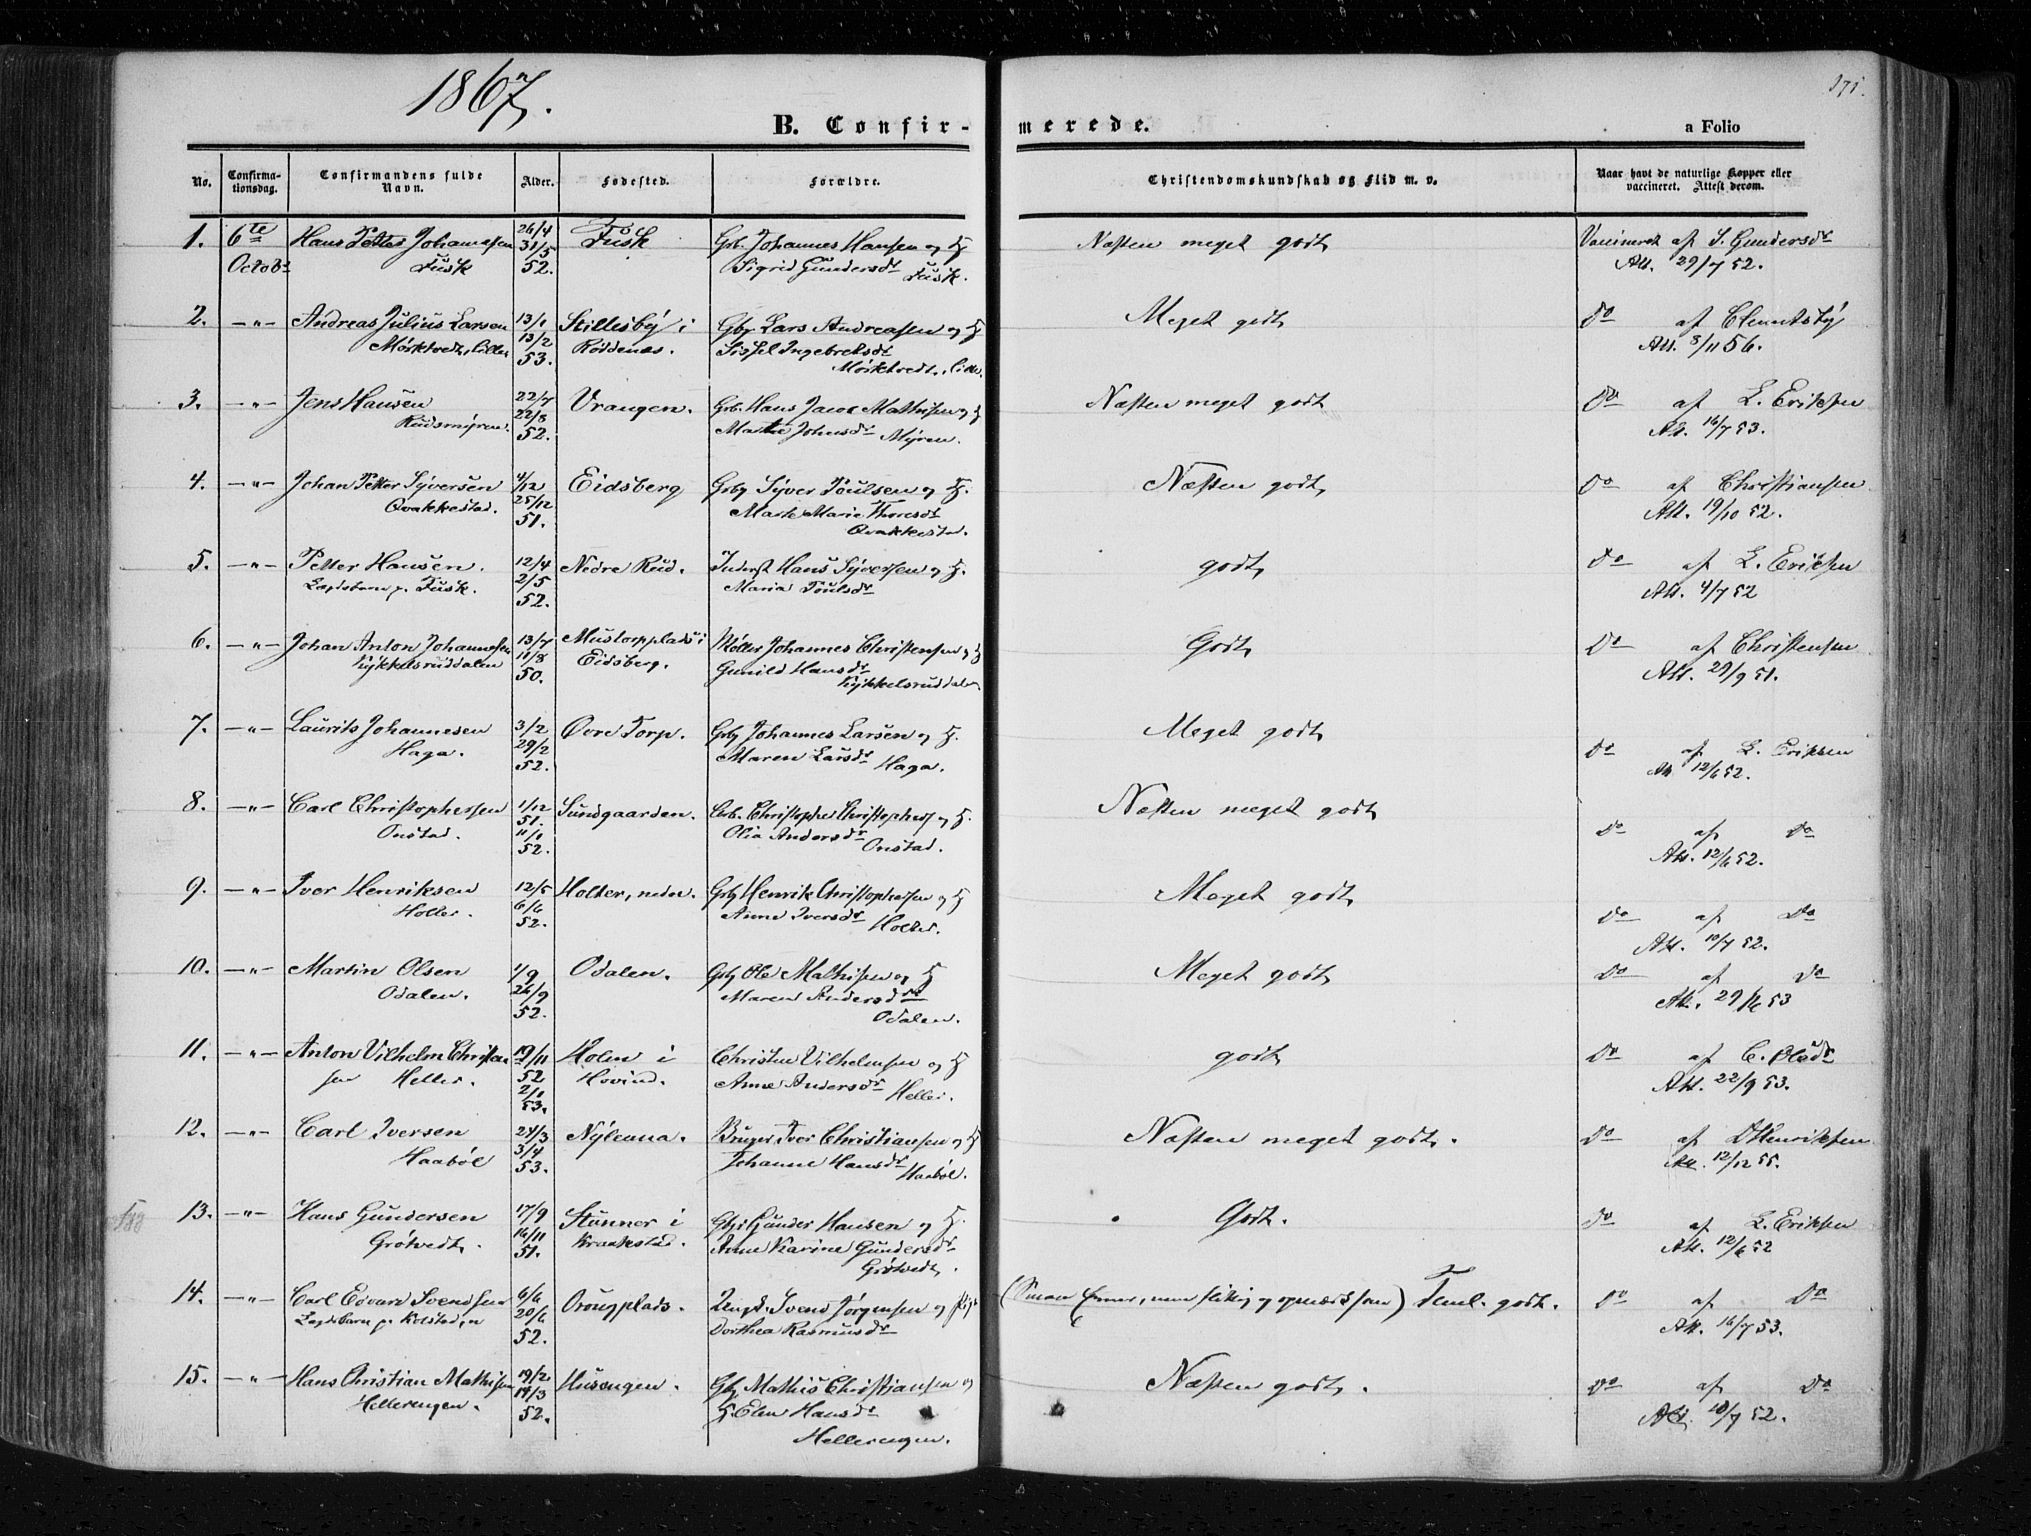 1867.
171.
B. Confirmerede.
a Folio
No. Confirmationsdag. Confirmandens fulde Navn. Alder. Fødested. Forældre. Christendomskundskab og Flid m. v. Naar havt de naturlige Kopper eller vaccineret. Attest derom.
1. 6te Octobr Hans Petter Johannesen Fusk 26/4 31/5 52. Fusk Grb. Johannes Hansen og H. Sigrid Gundersdr Fusk. Næsten meget godt Vaccineret af S. Gundersdr Att. 29/7 52.
2. -"- Andreas Julius Larsen Mørktvedt, lille 13/1 13/2 53. Stillesby i Røddenæs. Gbr Lars Andreasen og H. Sissel Ingebretsdr Mørktvedt, lille. Meget godt Do af Clemetsby Att. 8/11 56.
3. -"- Jens Hansen Rudsmyren. 22/7 22/8 52. Vrangen. Grb. Hans Jacob Mathisen og H. Marte Johnsdr Myren. Næsten meget godt Do af L. Eriksen Att. 16/7 53.
4. -"- Johan Petter Syversen Qvakkestad. 4/12 25/12 51. Eidsberg Gbr Syver Poulsen og H. Marte Marie Thoresdr Qvakkestad. Næsten godt Do af Christiansen Att. 19/10 52.
5. -"- Petter Hansen. Lægdsbarn p. Fusk. 12/4 2/5 52. Nedre Rud. Inderst Hans Syversen og H. Maria Poulsdr godt Do af L. Eriksen Att. 4/7 52
6. -"- Johan Anton Johannesen Kykkelsruddalen 13/7 11/8 50. Mustorpplads i Eidsberg. Møller Johannes Christensen og H. Gunild Hansdr Kykkelsruddalen. Godt Do af Christensen Att. 29/9 51.
7. -"- Laurits Johannesen Haga. 3/2 29/2 52. Øvre Torp. Gbr Johannes Larsen og H. Maren Larsdr Haga. Meget godt Do af L. Eriksen Att 12/6 52.
8. -"- Carl Christophersen Onstad. 1/12 51. 11/1 52. Sundgaarden. Christopher Christophers og H. Olia Andersdr Onstad. Næsten meget godt Do af Do Att. 12/6 52.
9. -"- Iver Henriksen Holter. 12/5 6/6 52. Holter, nedre. Gbr Henrik Christophersen og H. Anne Iversdr Holter. Meget godt Do af Do Att. 10/7 52.
10. -"- Martin Olsen Odalen. 1/9 26/9 52. Odalen. Gbr Ole Mathisen og H. Maren Andersdr Odalen. Meget godt Do af Do Att. 29/6 53
11. -"- Anton Vilhelm Christensen Heller. 19/11 52 2/1 53. Holen i Hovind. Christen Vilhelmsen og H. Anne Andersdr Heller. godt Do af C. Olsdr Att. 22/9 53.
12. -"- Carl Iversen Haabøl 24/3 3/4 53. Nylenna. Bruger Iver Christiansen og H. Johanne Hansdr Haabøl. Næsten meget godt. Do af D Henriksen Att. 12/12 55.
13. -"- Hans Gundersen Grøtvedt. 17/9 16/11 51. Stunner i Kraakstad. Gbr Gunder Hansen og H. Anne Karine Gundersdr Grøtvedt. Godt. Do af L. Eriksen Att. 12/6 52
14. -"- Carl Edvard Svendsen Lægdsbarn p. Kolstad, 6/6 20/6 52. Oraugplads. Svend Jørgensen og Pige Dorthea Rasmusdr (Smaa Evner, men flittig og opmærksom) Teml. godt. Do af Do Att. 16/7 53.
15. -"- Hans Christian Mathisen Hellerengen. 19/2 14/3 52. Husengen. Gbr Mathis Christiansen og H. Elen Hansdr Hellerengen. Næsten godt. Do af Do Att. 10/7 52.